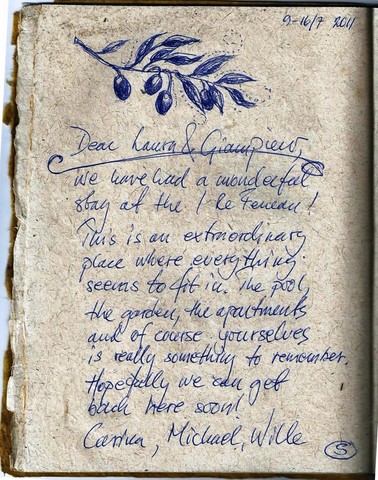 9-16/7 2011
Dear Laura & Giampiero,
we have had a wonderful
stay at the I Le Feneau!
This is an extraordinary
place where everything
seems to fit in. The pool,
the garden, the apartments
and of course yourselves
is really something to remember.
Hopefully we can get
back here soon!
Carina, Michael, Wille
S